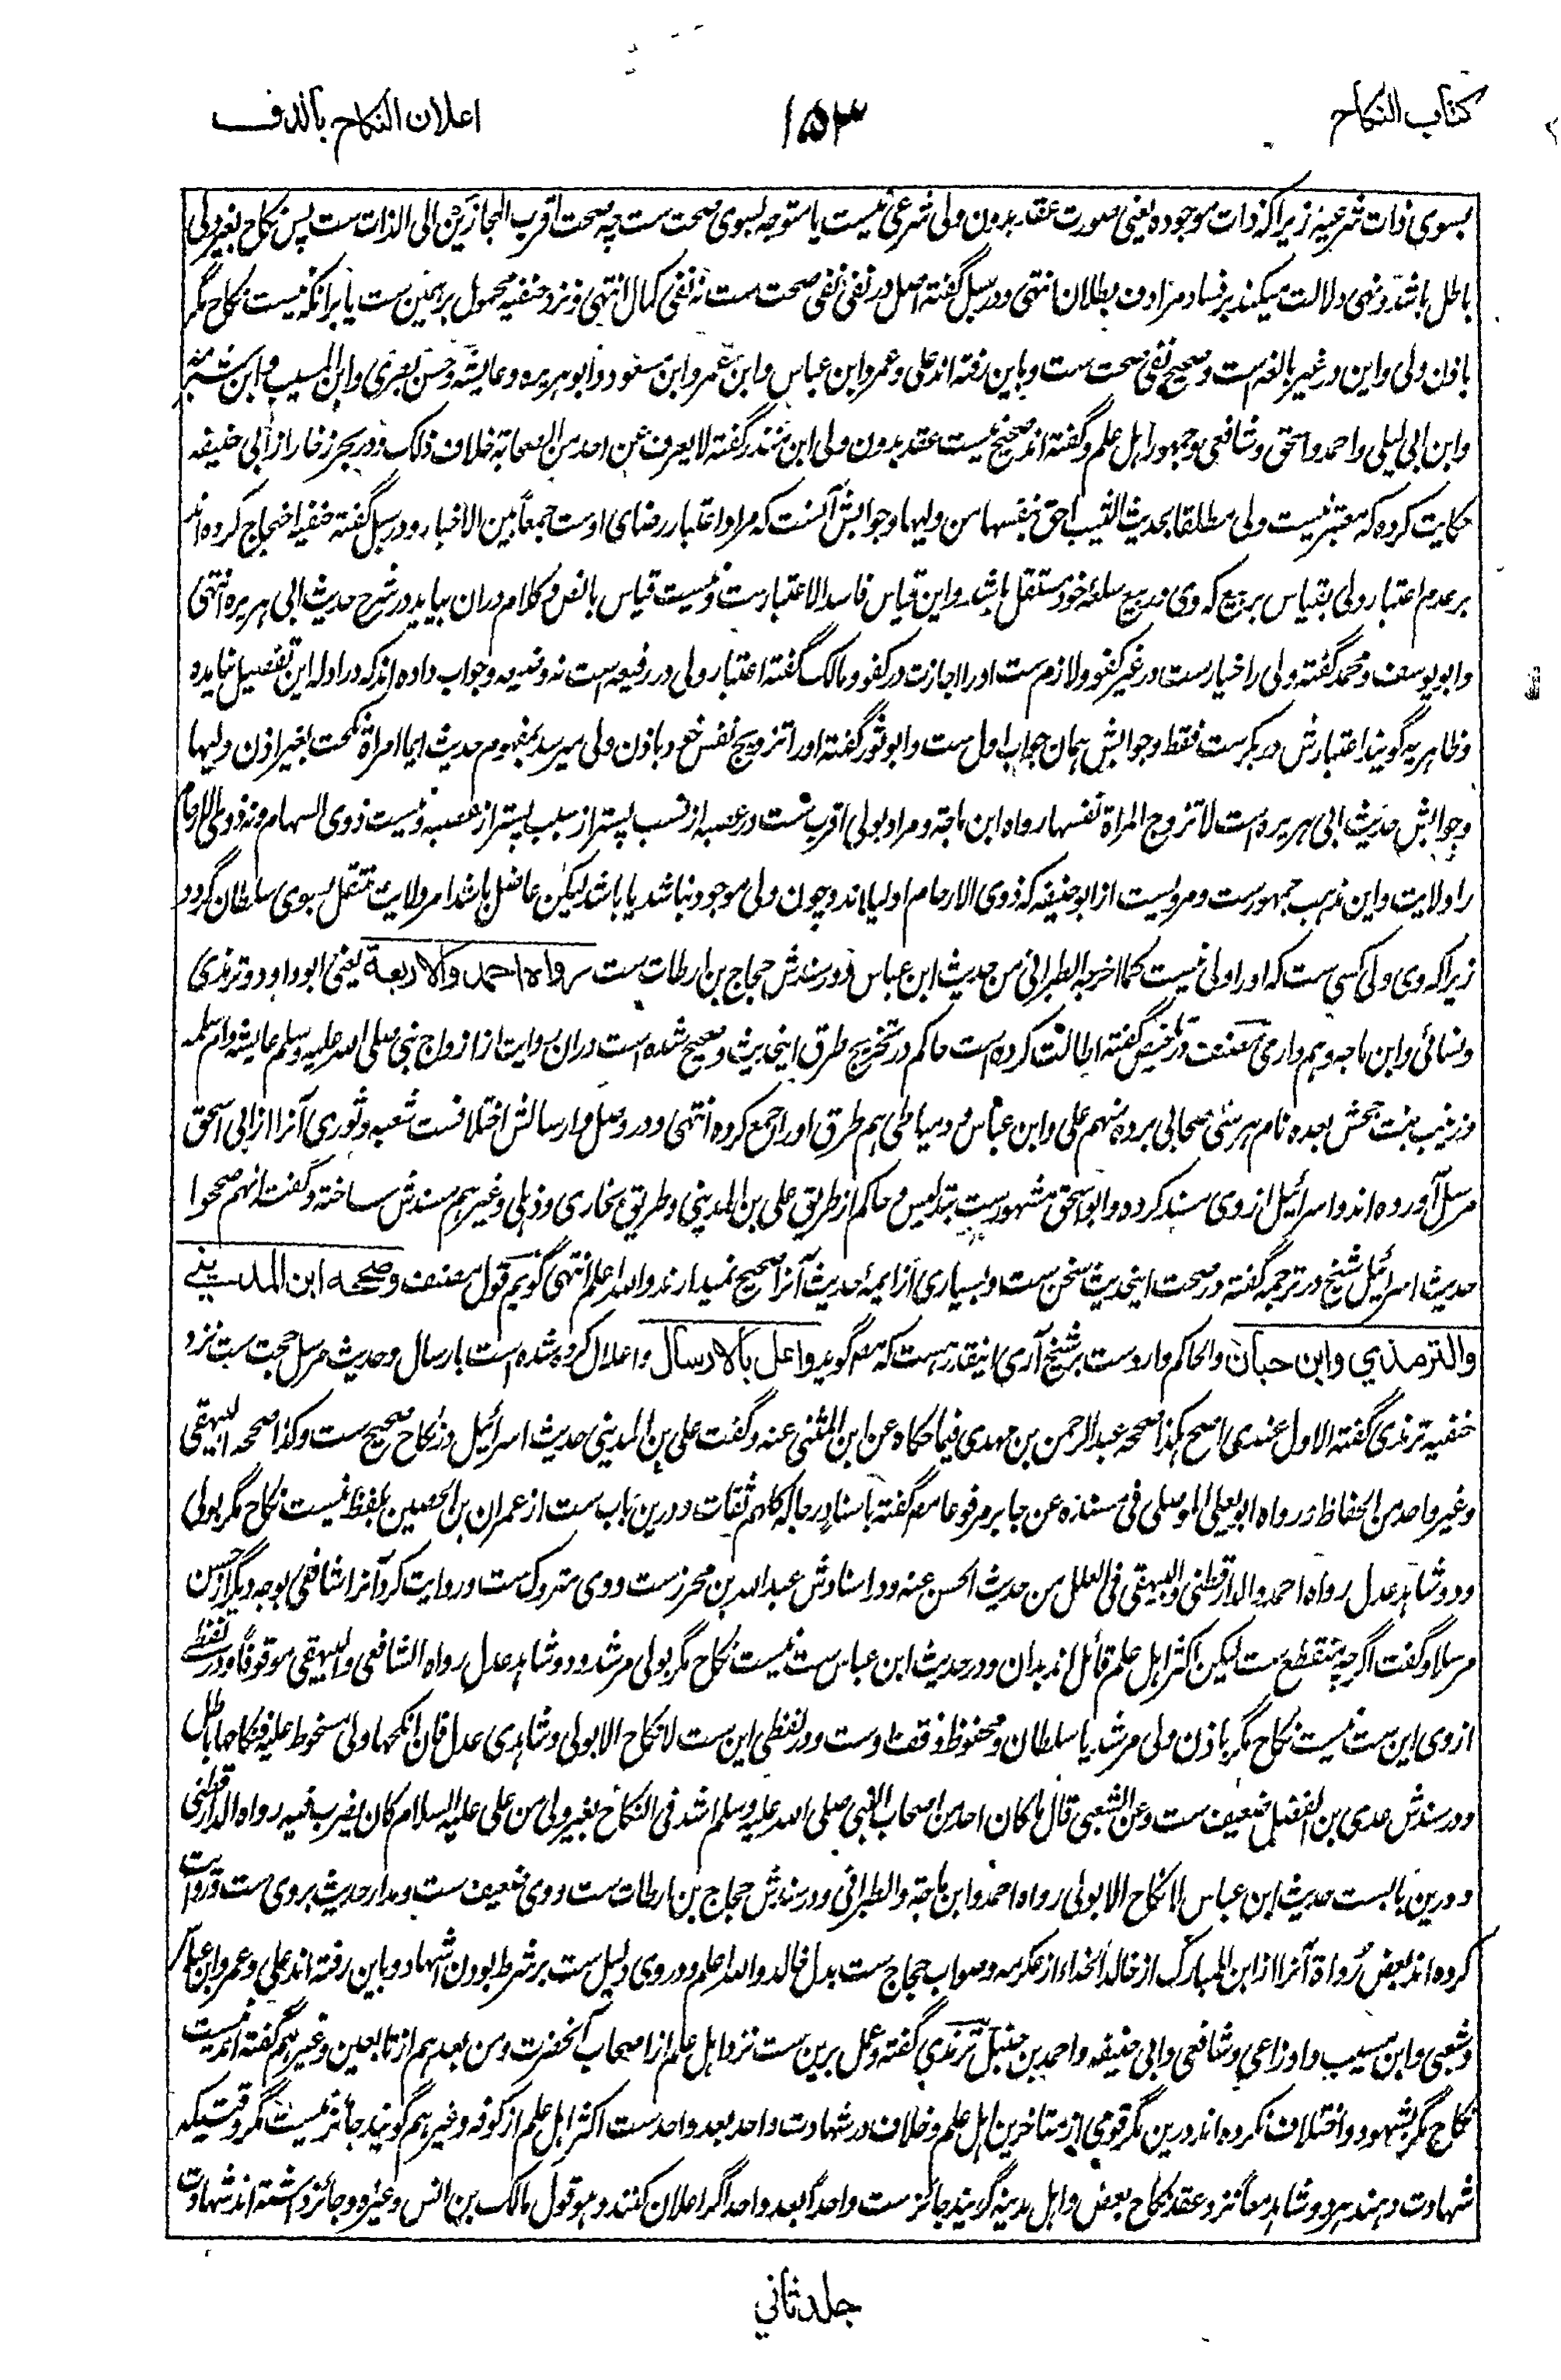 کتاب النکاح
۱۵۳
اعلان النکاح بالدف
بسوی ذات شرعیه زیرا که ذات موجوده یعنی صورت عقد بدون ولی شرعی نیست یا متوجه بسوی صحت ست چه صحت اقرب المجازین الی الذات ست پس نکاح بغیر ولی
باطل باشد و نهی دلالت میکند بر فساد مرادف بطلان انتهی و در سبل گفته اصل در نفی نفی صحت ست نه نفی کمال انتهی و نزد حنفیه محمول بر همین ست یا بر آنکه نیست نکاح مگر
باذن ولی و این در غیر بالغه است و صحیح نفی صحت ست و باین رفته اند علی و عمر و ابن عباس و ابن عمر و ابن مسعود و ابو هریره و عایشه و حسن بصری و ابن المسیب و ابن شبرمه
و ابن ابی لیلی و احمد و اسحق و شافعی و جمهور اهل علم و گفته اند صحیح نیست عقد بدون ولی ابن منذر گفته لا یعرف عن احد من الصحابة خلاف ذلک و در بحر زخار از ابی حنیفه
حکایت کرده که معتبر نیست ولی مطلقا بحدیث الثیب احق بنفسها من ولیها و جوابش آنست که مراد اعتبار رضای اوست جمعا بین الاخبار و در سبل گفته حنفیه احتجاج کرده اند
بر عدم اعتبار ولی بقیاس بر بیع که وی در بیع سلعه خود مستقل باشد و این قیاس فاسد الاعتبارست و نیست قیاس با نص و کلام دران بیاید در شرح حدیث ابی هریره انتهی
و ابو یوسف و محمد گفته ولی را خیارست در غیر کفو و لازم ست او را اجازت در کفو و مالک گفته اعتبار ولی در رفیعه است نه وضیعه و جواب داده اند که در ادله این تفصیل نیامده
و ظاهریه گویند اعتبارش در بکرست فقط و جوابش همان جواب اول ست و ابو ثور گفته او را تزویج نفس خود باذن ولی میرسد بمفهوم حدیث ایما امراة نکحت بغیر اذن ولیها
و جوابش حدیث ابی هریره است لا تزوج المراة نفسها رواه ابن ماجة و مراد بولی اقرب ست در عصبه از نسب پستر از سبب پستر از عصبه و نیست ذوی السهام و نه ذوی الارحام
را ولایت و این مذهب جمهورست و مرویست از ابو حنیفه که ذوی الارحام اولیا اند و چون ولی موجود نباشد یا باشد لیکن عاضل باشد امر ولایت منتقل بسوی سلطان گردد
زیرا که وی ولی کسی ست که او را ولی نیست کما اخرجه الطبرانی من حدیث ابن عباس و در سندش حجاج بن ارطات ست رواه احمد والاربعة یعنی ابو داود و ترمذی
و نسائی و ابن ماجه و هم دارمی مصنف در تلخیص گفته اطالت کرده است حاکم در تخریج طرق اینحدیث و صحیح شده است دران روایت از ازواج نبی صلی الله علیه وسلم عایشه و ام سلمه
و زینب بنت جحش بعده نام هر سی صحابی برده منهم علی و ابن عباس و دمیاطی هم طرق او را جمع کرده انتهی و در وصل و ارسالش اختلافست شعبه و ثوری آنرا از ابی اسحق
مرسل آورده اند و اسرائیل از وی مسند کرده و ابو اسحق مشهورست بتدلیس و حاکم از طریق علی بن المدینی و طریق بخاری و ذهلی و غیرهم مسندش ساخته و گفته انهم صححوا
حدیث اسرائیل شیخ در ترجمه گفته در صحت اینحدیث سخن ست و بسیاری از ایمه حدیث آنرا صحیح نمیدارند والله اعلم انتهی گویم قول مصنف وصححه ابن المدینی
والترمذي وابن حبان والحاکم وارد ست بر شیخ آری اینقدر هست که هم گوید واعل بالارسال و اعلال کرده شده است بارسال و حدیث مرسل حجت ست نزد
حنفیه ترمذی گفته الاول عندی اصح هکذا صححه عبد الرحمن بن مهدی فیما حکاه عن ابن المثنی عنه و گفت علی بن المدینی حدیث اسرائیل در نکاح صحیح ست وکذا صححه البیهقی
وغیر واحد من الحفاظ و رواه ابو یعلی الموصلی فی مسنده عن جابر مرفوعا هم گفته باسناد رجاله کلهم ثقات و درین باب ست از عمران بن الحصین بلفظ نیست نکاح مگر بولی
و دو شاهد عدل رواه احمد والدارقطنی والبیهقی فی العلل من حدیث الحسن عنه و در اسنادش عبد الله بن محرزست و وی متروک ست و روایت کرد آنرا شافعی بوجه دیگر از حسن
مرسلا و گفت اگرچه منقطع ست لیکن اکثر اهل علم قائل اند بدان و در حدیث ابن عباس ست نیست نکاح مگر بولی مرشد و دو شاهد عدل رواه الشافعی والبیهقی موقوفا و در لفظی
از وی این ست نیست نکاح مگر باذن ولی مرشد یا سلطان و محفوظ وقف اوست و در لفظی این ست لا نکاح الا بولی وشاهدی عدل فان انکحها ولی مسخوط علیه فنکاحها باطل
و در سندش عدی بن الفضل ضعیف ست وعن الشعبی قال ما کان احد من اصحاب النبی صلی الله علیه وسلم اشد فی النکاح بغیر ولی من علی علیه السلام کان یضرب فیه رواه الدارقطنی
و درین بابست حدیث ابن عباس لا نکاح الا بولی رواه احمد وابن ماجة والطبرانی و در سندش حجاج بن ارطات ست و وی ضعیف ست و مدار حدیث بروی ست و روایت
کرده اند بعض رواة آنرا از ابن المبارک از خالد الحذاء از عکرمه و صواب حجاج ست بدل خالد والله اعلم و در وی دلیل ست بر شرط بودن اشهاد و باین رفته اند علی و عمر و ابن عباس
و شعبی و ابن مسیب و اوزاعی و شافعی و ابی حنیفه و احمد بن حنبل ترمذی گفته و عمل برین ست نزد اهل علم از اصحاب آنحضرت و من بعدهم از تابعین و غیرهم گفته اند نیست
نکاح مگر بشهود و اختلاف نکرده اند درین مگر قومی از متاخرین اهل علم و خلاف در شهادت واحد بعد واحدست اکثر اهل علم از کوفه و غیرهم گویند جائز نیست مگر وقتیکه
شهادت دهند هر دو شاهد معا نزد عقد نکاح بعض و اهل مدینه گویند جائزست واحدا بعد واحد اگر اعلان کنند و هو قول مالک بن انس و غیره و جائز داشته اند شهادت
جلد ثاني